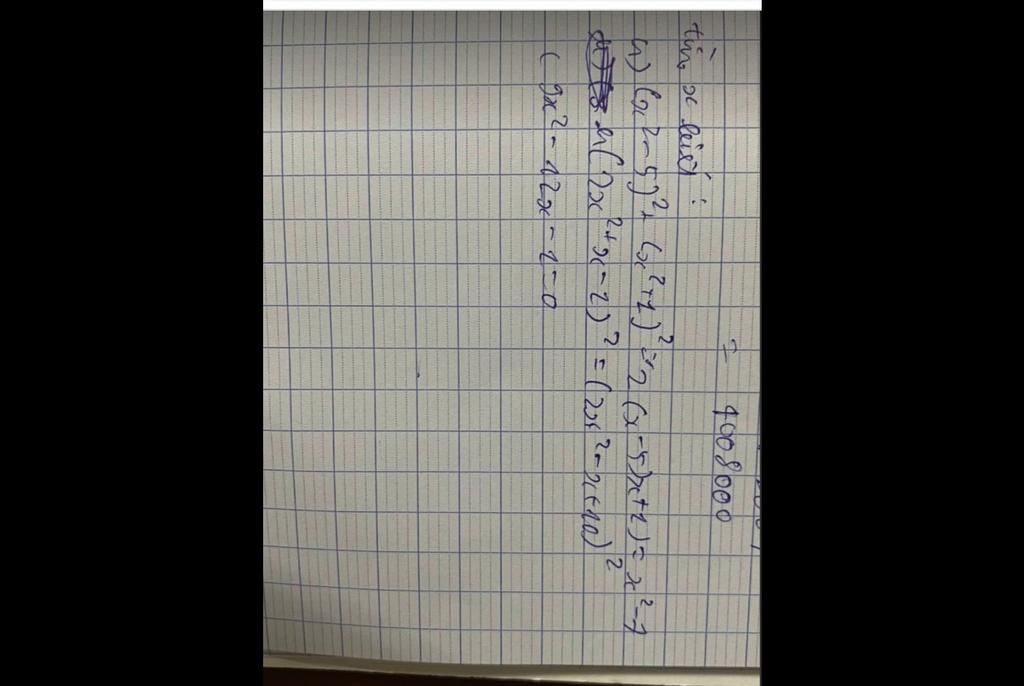 = 4008000
tìm x biết :
a) (x² - 5)² + (x² + 1)² = 2 (x - 5)x + 1) = x² - 1
b( 2x² + x - 2)² = (2x² - x + 10)²
( 9x² - 12x - 1 = 0